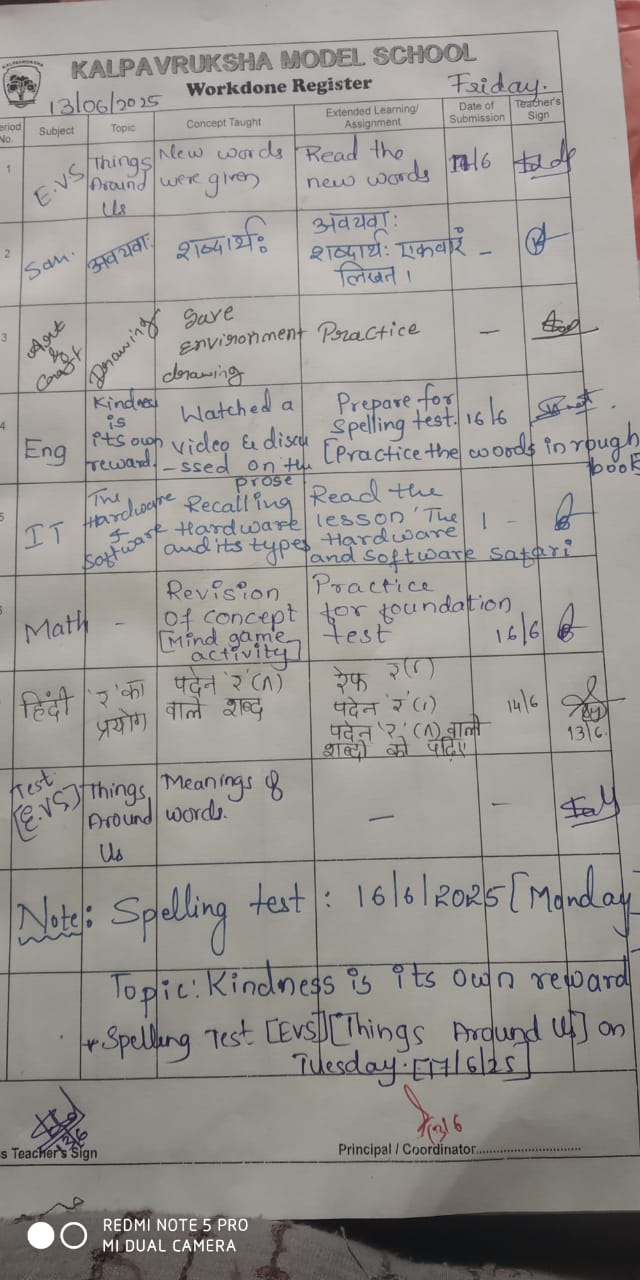 KALPAVRUKSHA
KALPAVRUKSHA MODEL SCHOOL
Workdone Register
13/06/2025
Friday.
eriod No.
Subject
Topic
Concept Taught
Extended Learning/ Assignment
Date of Submission
Teacher's Sign
1
E.VS
Things
Around
Us
New words
were given
Read the
new words
17/6
2
San.
अवयवाः
शब्दार्थः
अवयवाः
शब्दार्थः एकवारं
लिखत।
-
3
Art
&
Craft
Drawing
Save
Environment
drawing
Practice
-
4
Eng
Kindness
is
its own
reward.
Watched a
video & discu
-ssed on the
prose
Prepare for
Spelling test.
[Practice the words in rough
book
16/6
5
IT
The
Hardware
&
Software
Recalling
Hardware
and its types
Read the
lesson 'The
Hardware
and software safari
-
Math
-
Revision
of concept
[Mind game
activity]
Practice
for foundation
test
16/6
हिंदी
'र' का
प्रयोग
पदेन 'र' (^)
वाले शब्द
रेफ र(र्)
पदेन 'र' (्र)
पदेन 'र' (^) वाले
शब्दों को पढ़िए
14/6
13/6.
Test
[E.VS]
Things
Around
Us
Meanings of
words.
-
-
Note: Spelling test : 16/6/2025 [Monday
Topic: Kindness is its own reward
* Spelling Test [EVS] [Things Around Us] on
Tuesday. [17/6/25]
13/6
13/6
s Teacher's Sign
Principal / Coordinator
REDMI NOTE 5 PRO
MI DUAL CAMERA